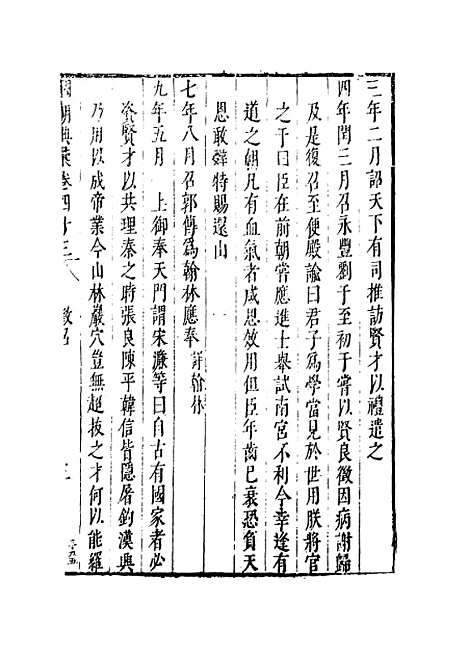 三年二月詔天下有司推訪賢才以禮遣之
四年閏三月召永豐劉于至初于嘗以賢良徵因病謝歸
及是復召至便殿諭曰君子為學當見於世用朕將官
之于曰臣在前朝嘗應進士舉試南宮不利今幸逢有
道之朝凡有血氣者咸思效用但臣年齒已衰恐負天
恩敢辭特賜還山
七年八月召郭傳為翰林應奉詳翰林
九年五月 上御奉天門謂宋濂等曰自古有國家者必
資賢才以共理秦之時張良陳平韓信皆隱屠釣漢興
乃用以成帝業今山林巖穴豈無超拔之才何以能羅
國朝典彙卷四十三 徵召